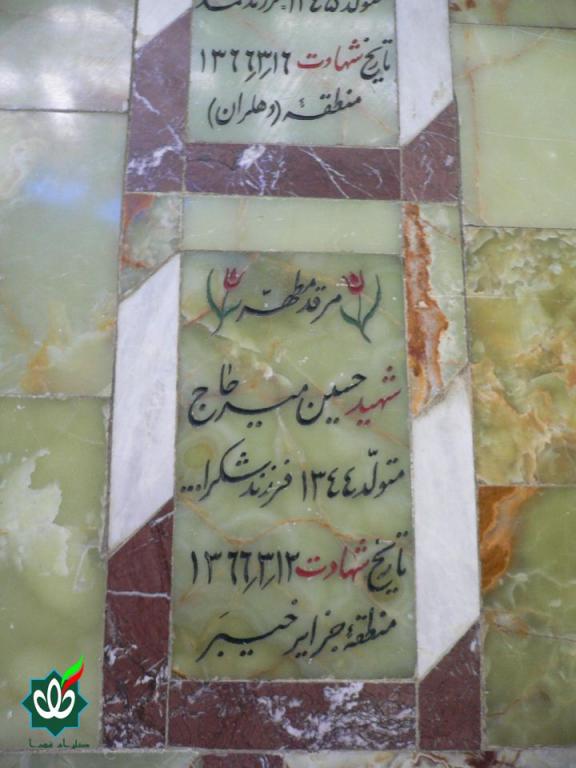 متولد ۱۳۴۵ فرزند
تاریخ شهادت ۱۳۶۶/۳/۱۶
منطقهٔ (دهلران)
مرقد مطهّر
شهید حسین میرحاج
متولّد ۱۳۴۴ فرزند شکرا...
تاریخ شهادت ۱۳۶۶/۳/۱۲
منطقهٔ جزایر خیبر